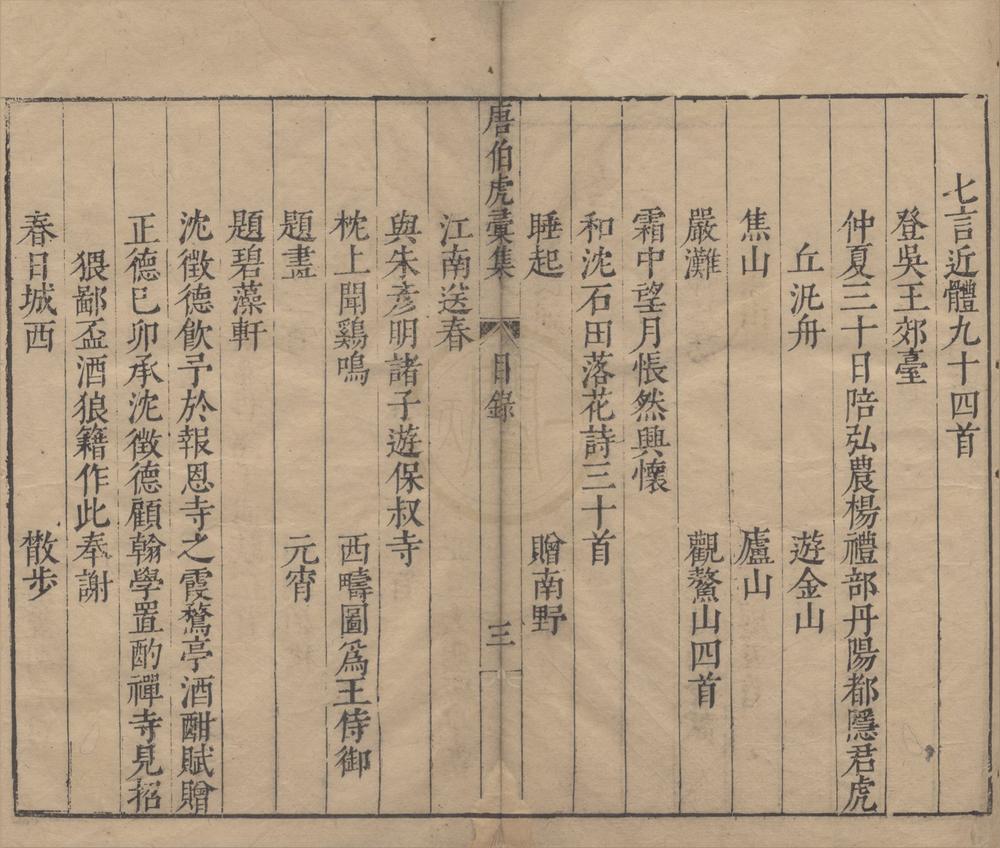 七言近體九十四首
登吳王郊臺
仲夏三十日陪弘農楊禮部丹陽都隱君虎
丘汎舟　遊金山
焦山　廬山
嚴灘　觀鰲山四首
霜中望月悵然興懷
和沈石田落花詩三十首
睡起　贈南野
唐伯虎彙集　目錄　三
江南送春
與朱彥明諸子遊保叔寺
枕上聞鷄鳴　西疇圖爲王侍御
題畫　元宵
題碧藻軒
沈徵德飲予於報恩寺之霞鶩亭酒酣賦贈
正德己卯承沈徵德顧翰學置酌禪寺見招
猥鄙盃酒狼籍作此奉謝
春日城西　散步